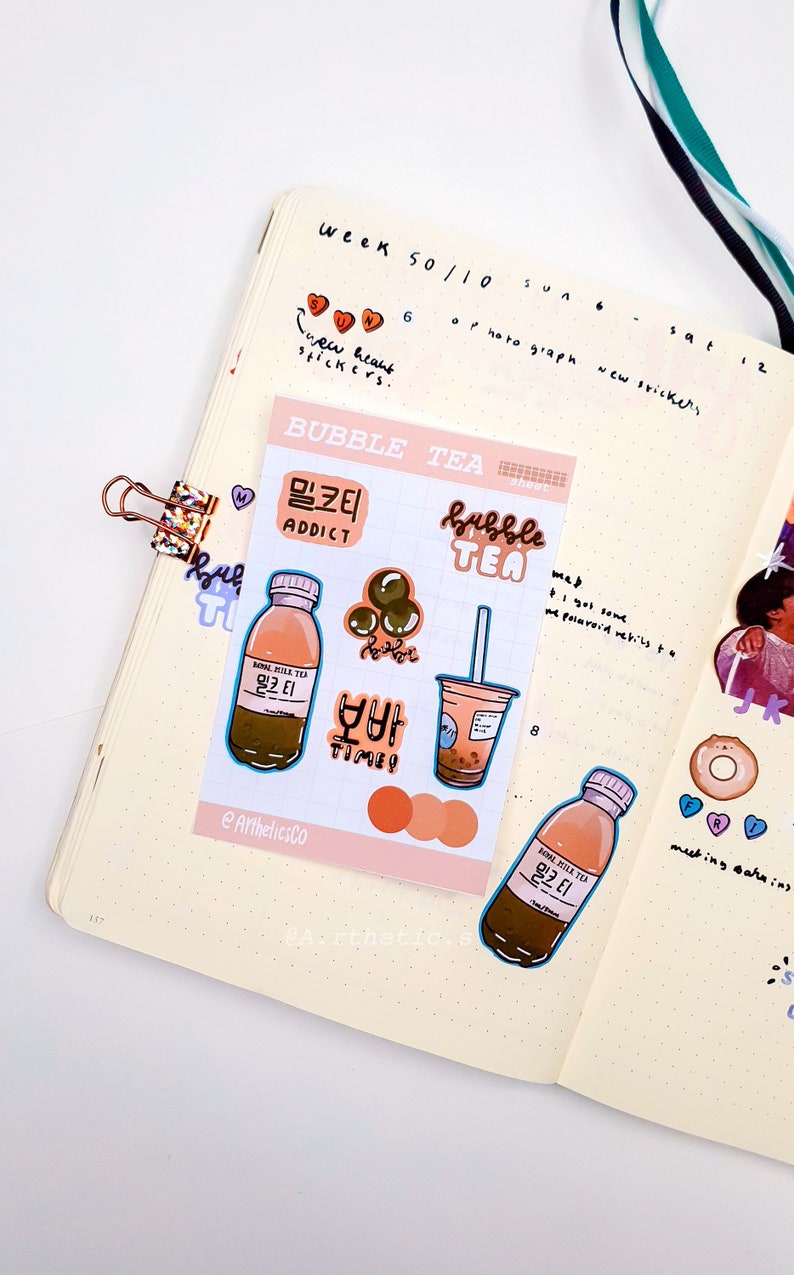 week 50/10 sun 6 - sat 12
SUN
6
o photograph new stickers
new heart
stickers.
BUBBLE TEA
sheet
밀크티
ADDICT
bubble
TEA
M
bub
boba
ROYAL MILK TEA
밀크티
보바
TIME!
@ARtheticsCo
map
I got some
polaroid refils
8
ROYAL MILK TEA
밀크티
JK
FRI
meeting
157
@A.rthetic.s